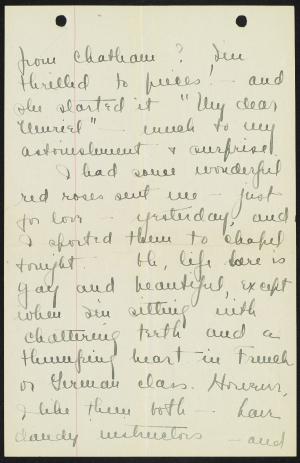 from Chatham? I'm
thrilled to pieces! - and
she started it "My dear
Muriel" - much to my
astonishment & surprise!
I had some wonderful
red roses sent me - just
for love - yesterday, and
I sported them to chapel
tonight. Oh, life here is
gay and beautiful, except
when I'm sitting with
chattering teeth and a
thumping heart in French
or German class. However,
I like them both - have
dandy instructors - and